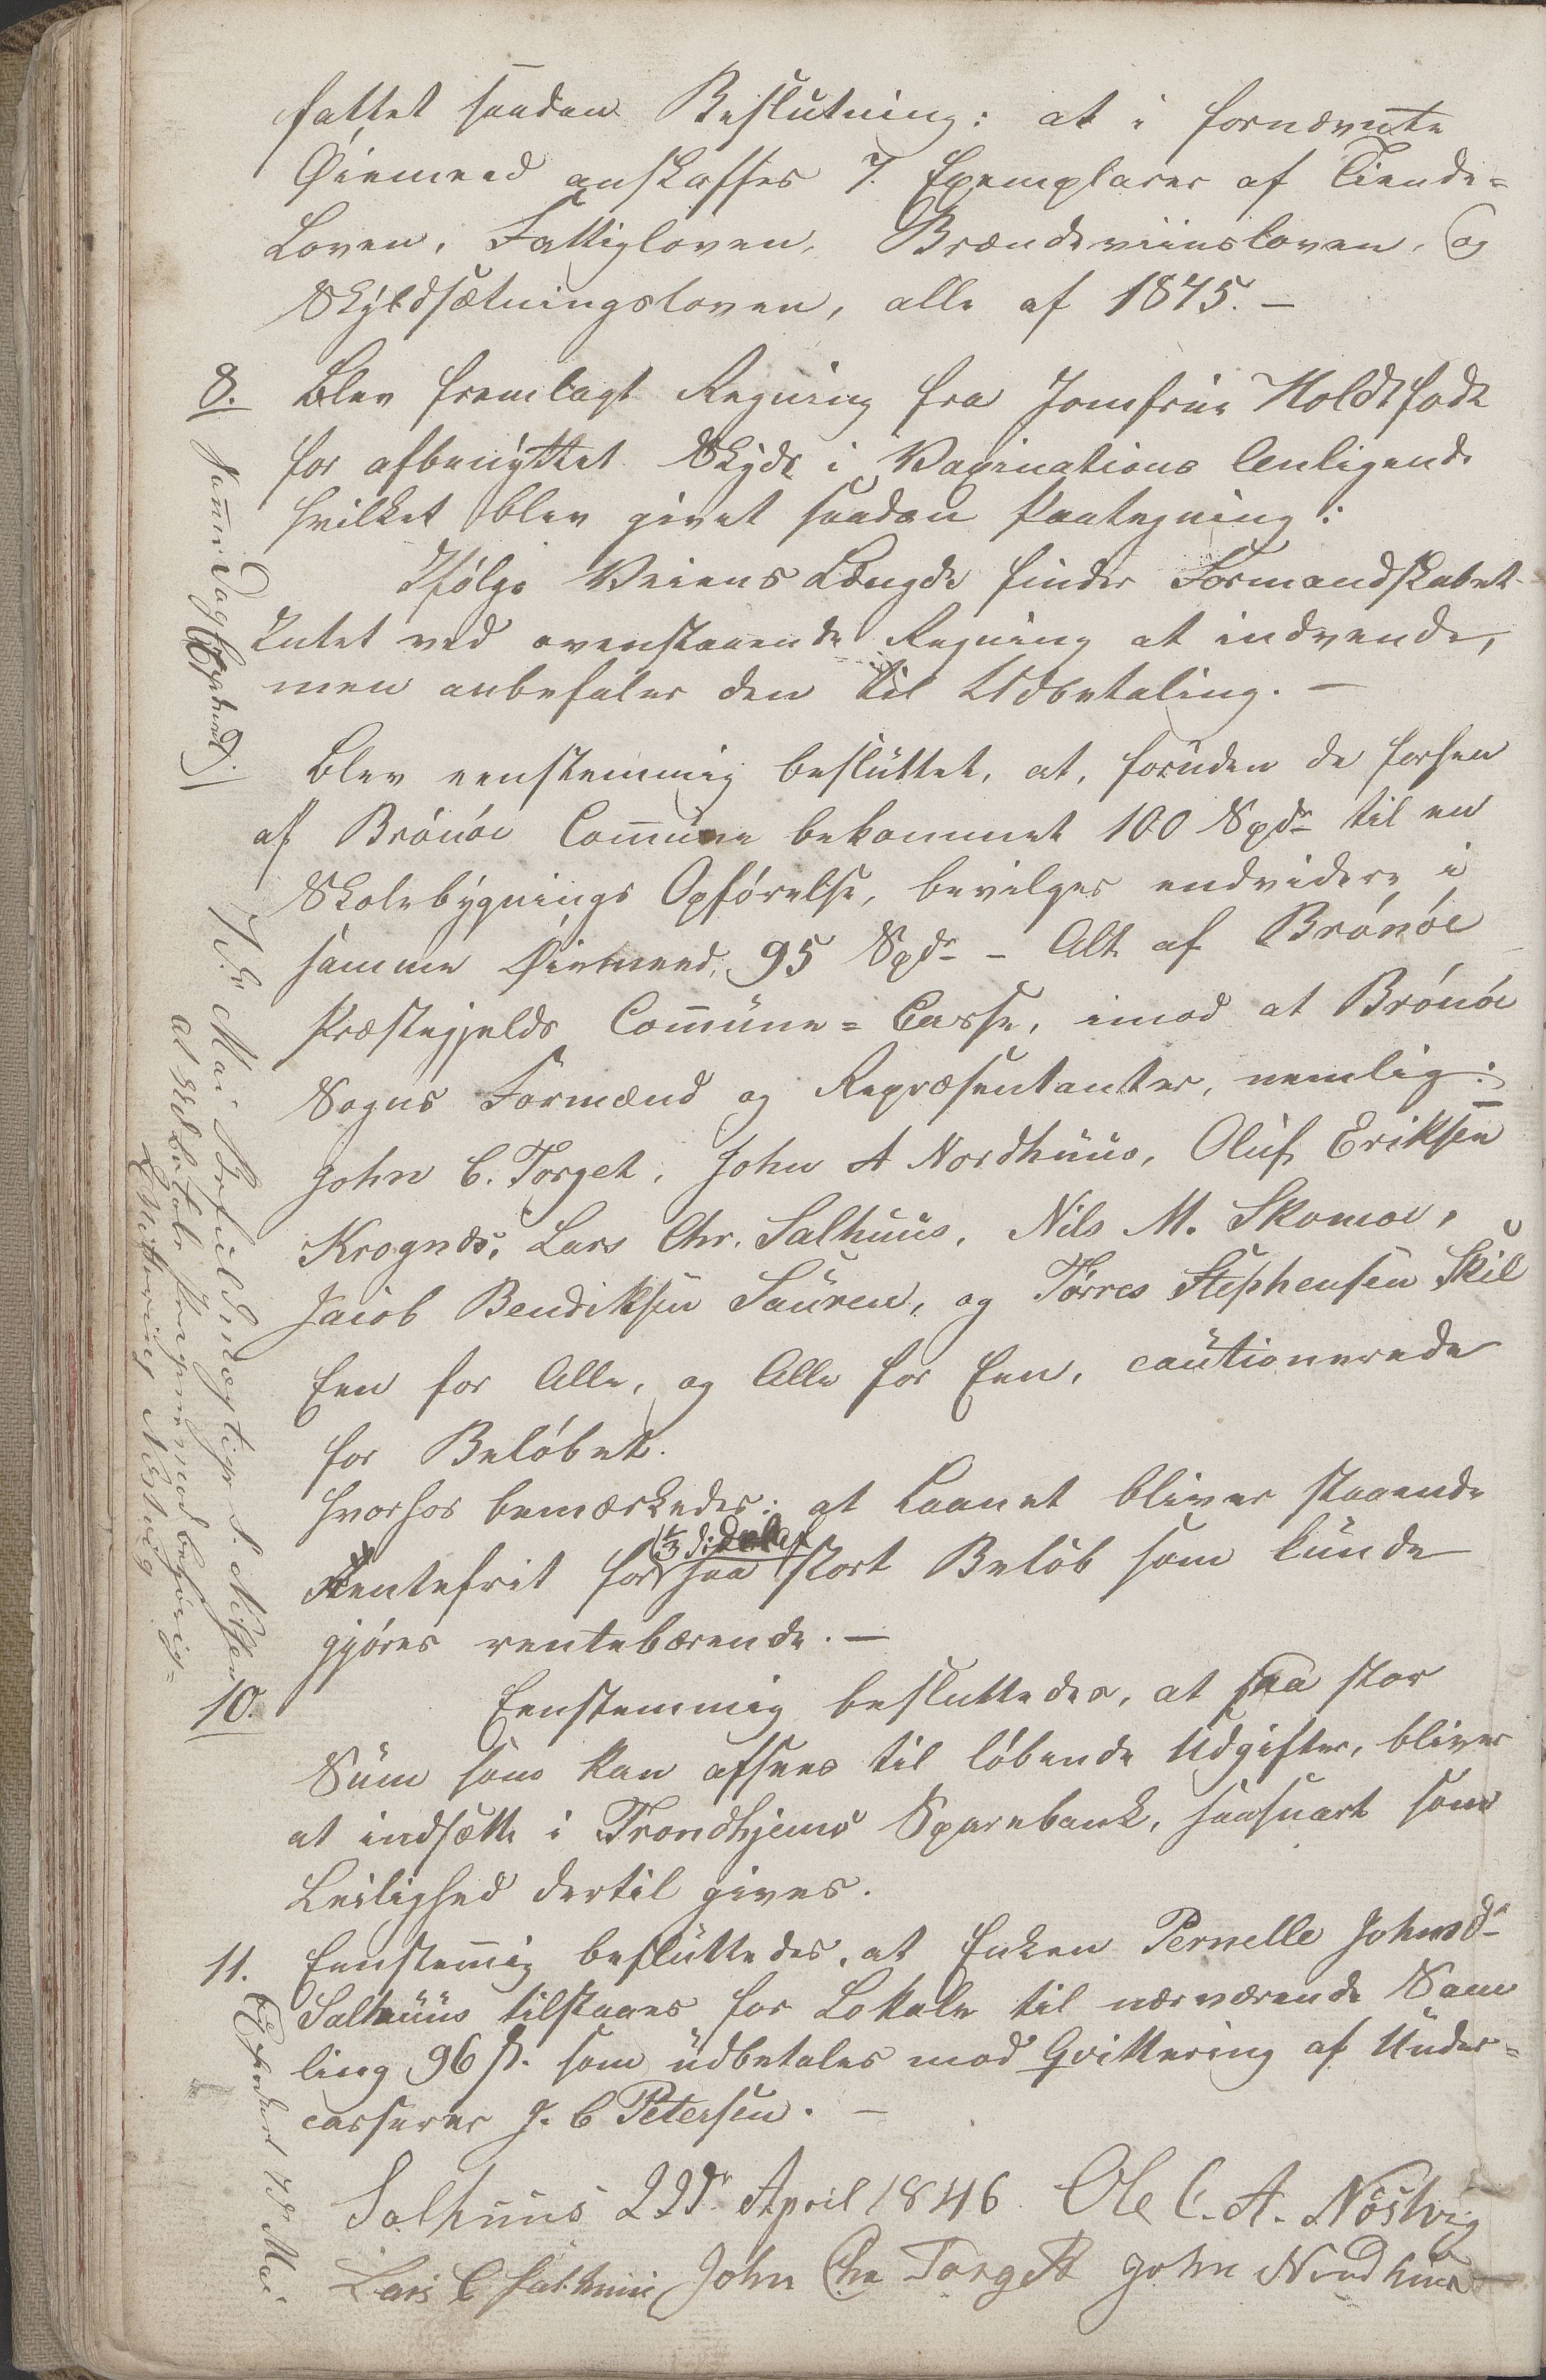 fattet saadan Beslutning: at i fornævnte
Øiemeed anskaffes 7. Exemplarer af Tiende-
Loven, Fattigloven, Brændeviinsloven, og
Skyldsætningsloven, alle af 1845. –
8. Blev fremlagt Regning fra Jomfrue Holdt
for afbenyttet Skyds i Vaxinations Anligende
hvilket blev givet saadan Paategning:
Ifølge Veiens Længde finder Formandskabet
Intet ved ovenstaaende Regning at indvende,
men anbefaler den til Udbetaling. –
Blev eenstemmig besluttet, at, foruden de forhen
af Brønøe Com̄une bekommet 100 Spdr til en
Skolebygnings Opførelse, bevilges endvidere i
samme Øiemeed, 95 Spdr – Alt af Brønøe
Præstegjelds Com̄une-Casse, imod at Brønøe
Sogns Formænd og Repræsentanter, nemlig:
John C. Torget, John A Nordhuus, Oluf Eriksen
Krognæs, Lars Chr. Salhuus, Nils M. Skomoe,
Jacob Bendiksen Sauren, og Tørres Stephensen Skil
Een for Alle, og Alle for Een, cautionerede
for Beløbet.
hvorhos bemærkedes: at Laanet bliver staaende
Rentefrit for 1/3 saa stort Beløb som kunde
gjøres rentebærende. –
10. Eenstemmig besluttedes, at saa stor
Sum som kan afsees til løbende Udgifter, bliver
at indsætte i Trondhjems Sparebank, saasnart som
Leilighed dertil gives.
11. Eenstem̄ig besluttedes, at Enken Pernelle Johnsdr
Salhuus tilstaaes for Lokale til nærværende Sam
ling 96 ß. som udbetales mod Qvittering af Under-
casserer J. C Petersen. –
Salhuus 22de April 1846. Ole C. A. Nöstvig
Lars C Salhuus John Chr Torgett John Nordhuus
Sam̄e Dag Expederet.
7de Mai
at Udbetale Pengene mod behørig
Qvittering Nöstvig
Expederet 7de Mai.